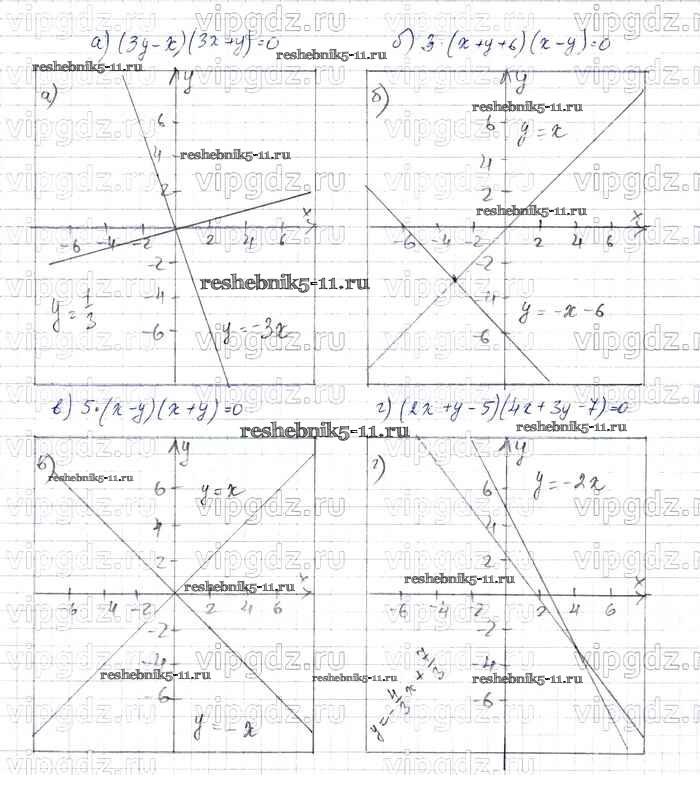 а) (3y-x)(3x+y)=0
б) 3·(x+y+6)(x-y)=0
reshebnik5-11.ru
reshebnik5-11.ru
а)
y
6
4
2
-6 -4 -2 2 4 6
x
-2
-4
-6
y = 1/3
y = -3x
reshebnik5-11.ru
reshebnik5-11.ru
б)
y
6
4
2
-6 -4 -2 2 4 6
x
-2
-4
-6
y = x
y = -x - 6
reshebnik5-11.ru
reshebnik5-11.ru
в) 5·(x-y)(x+y)=0
г) (2x+y-5)(4x+3y-7)=0
reshebnik5-11.ru
reshebnik5-11.ru
в)
y
6
4
2
-6 -4 -2 2 4 6
x
-2
-4
-6
y = x
y = -x
reshebnik5-11.ru
reshebnik5-11.ru
reshebnik5-11.ru
г)
y
6
4
2
-6 -4 -2 2 4 6
x
-2
-4
-6
y = -2x
reshebnik5-11.ru
reshebnik5-11.ru
reshebnik5-11.ru
vipgdz.ru